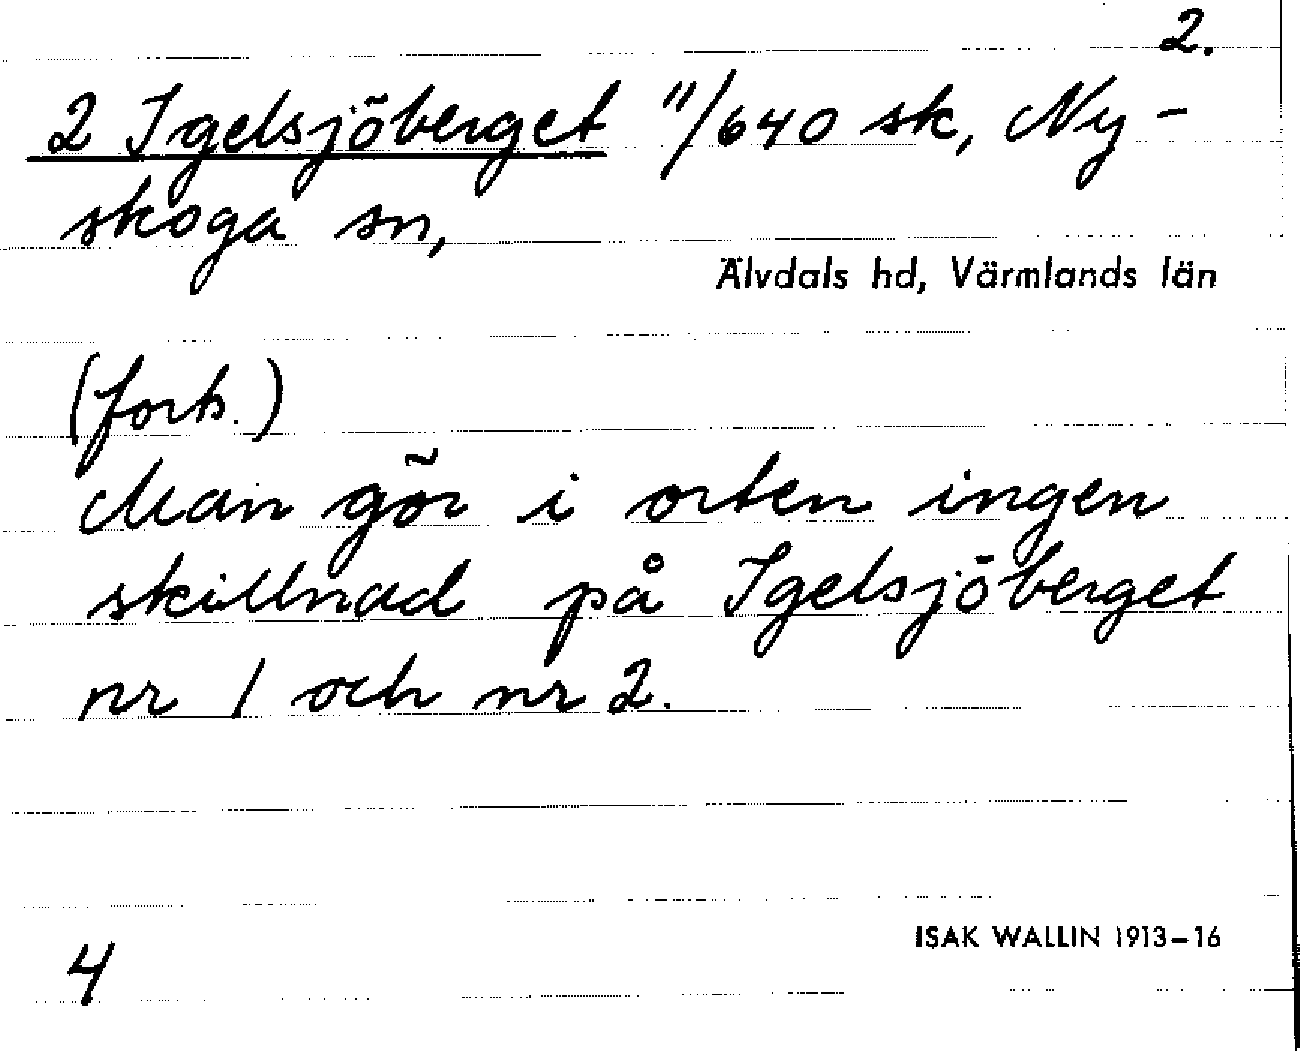 2.
2 Igelsjöberget 11/640 sk, Ny-
skoga sn,
Älvdals hd, Värmlands län
(forts.)
Man gör i orten ingen
skillnad på Igelsjöberget
nr 1 och nr 2.
ISAK WALLIN 1913-16
4